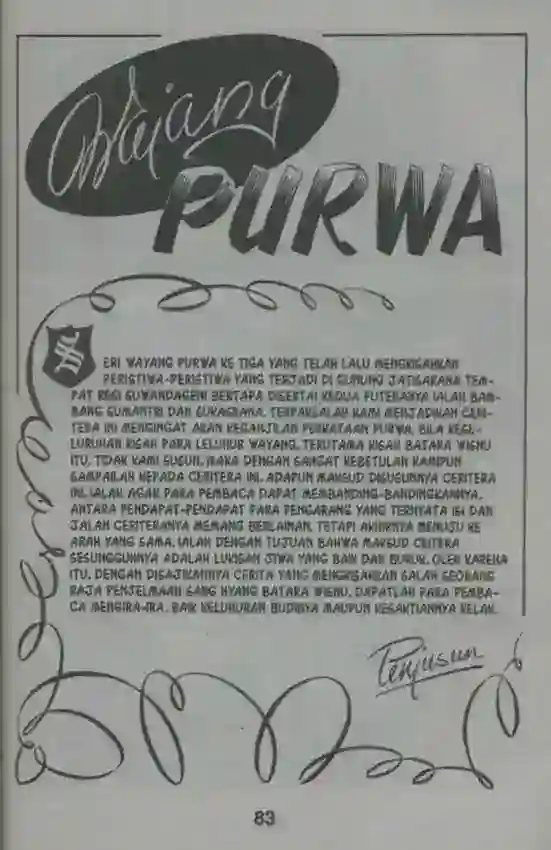 Wajang
PURWA
SERI WAYANG PURWA KE TIGA YANG TELAH LALU MENGKISAHKAN
PERISTIWA-PERISTIWA YANG TERJADI DI GUNUNG JATISARANA TEM-
PAT RESI SUWANDAGENI BERTAPA DISERTAI KEDUA PUTERANYA IALAH BAM-
BANG SUMANTRI DAN SUKASRANA. TERPAKSALAH KAMI MENJADIKAN CERI-
TERA INI MENGINGAT AKAN KEGANJILAN PERKATAAN PURWA. BILA KESE-
LURUHAN KISAH PARA LELUHUR WAYANG, TERUTAMA KISAH BATARA WISNU
ITU, TIDAK KAMI SUSUN, MAKA DENGAN SANGAT KEBETULAN KAMIPUN
SAMPAILAH KEPADA CERITERA INI. ADAPUN MAKSUD DISUSUNNYA CERITERA
INI, IALAH AGAR PARA PEMBACA DAPAT MEMBANDING-BANDINGKANNYA,
ANTARA PENDAPAT-PENDAPAT PARA PENGARANG YANG TERNYATA ISI DAN
JALAN CERITERANYA MEMANG BERLAINAN, TETAPI AKHIRNYA MENUJU KE
ARAH YANG SAMA, IALAH DENGAN TUJUAN BAHWA MAKSUD CRITERA
SESUNGGUHNYA ADALAH LUKISAN JIWA YANG BAIK DAN BURUK. OLEH KARENA
ITU, DENGAN DISAJIKANNYA CERITA YANG MENGKISAHKAN SALAH SEORANG
RAJA PENJELMAAN SANG HYANG BATARA WISNU, DAPATLAH PARA PEMBA-
CA MENGIRA-IRA, BAIK KELUHURAN BUDINYA MAUPUN KESAKTIANNYA KELAK.
Penjusun
83